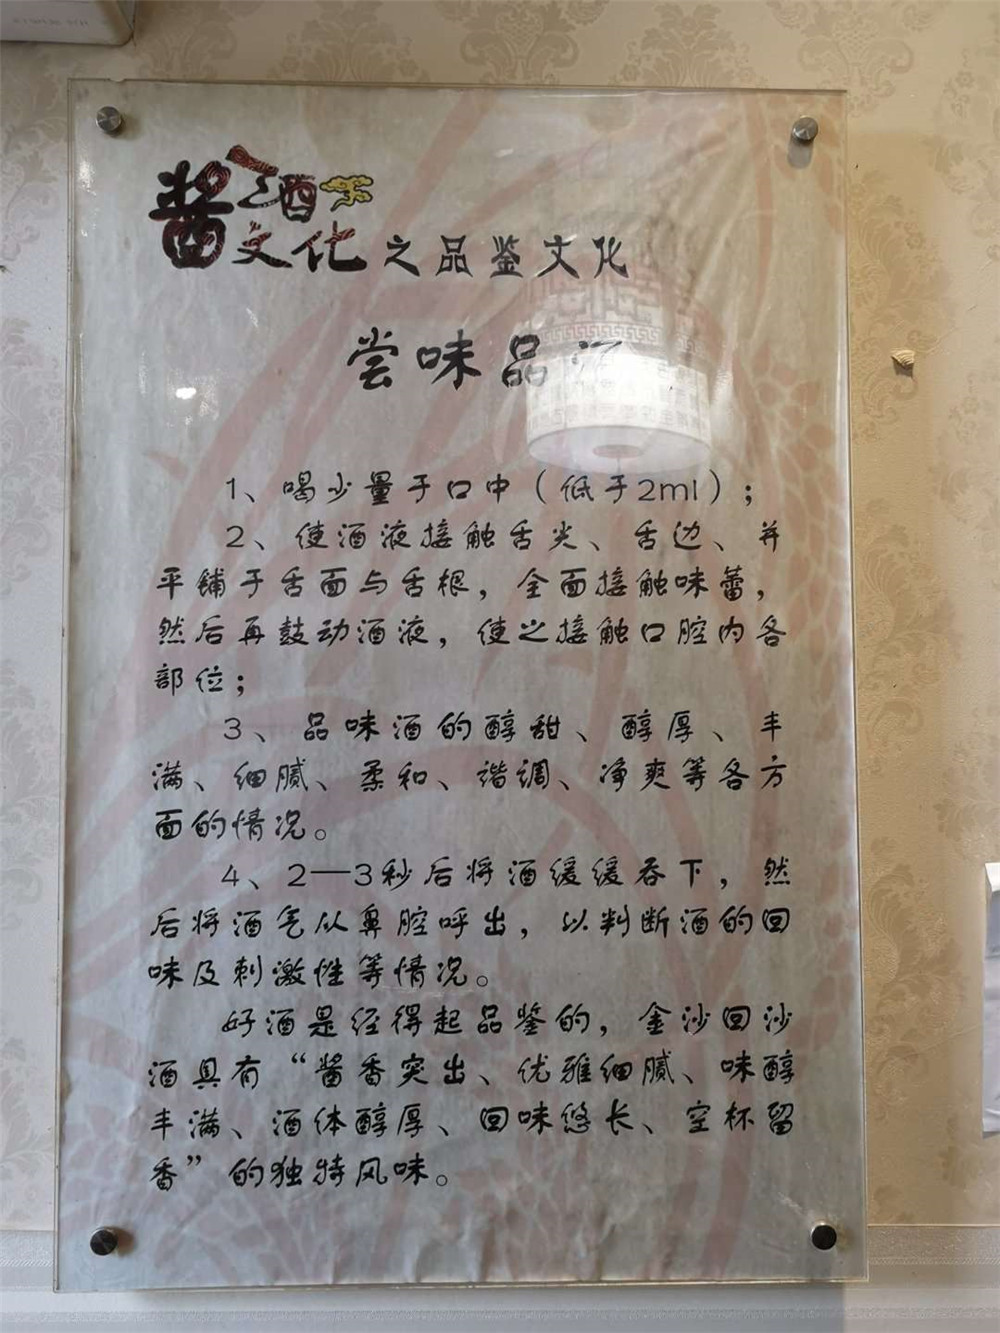 酱酒
文化之品鉴文化
尝味品酒
1、喝少量于口中（低于2ml）；
2、使酒液接触舌尖、舌边、并
平铺于舌面与舌根，全面接触味蕾，
然后再鼓动酒液，使之接触口腔内各
部位；
3、品味酒的醇甜、醇厚、丰
满、细腻、柔和、谐调、净爽等各方
面的情况。
4、2—3秒后将酒缓缓吞下，然
后将酒气从鼻腔呼出，以判断酒的回
味及刺激性等情况。
好酒是经得起品鉴的，金沙回沙
酒具有“酱香突出、优雅细腻、味醇
丰满、酒体醇厚、回味悠长、空杯留
香”的独特风味。